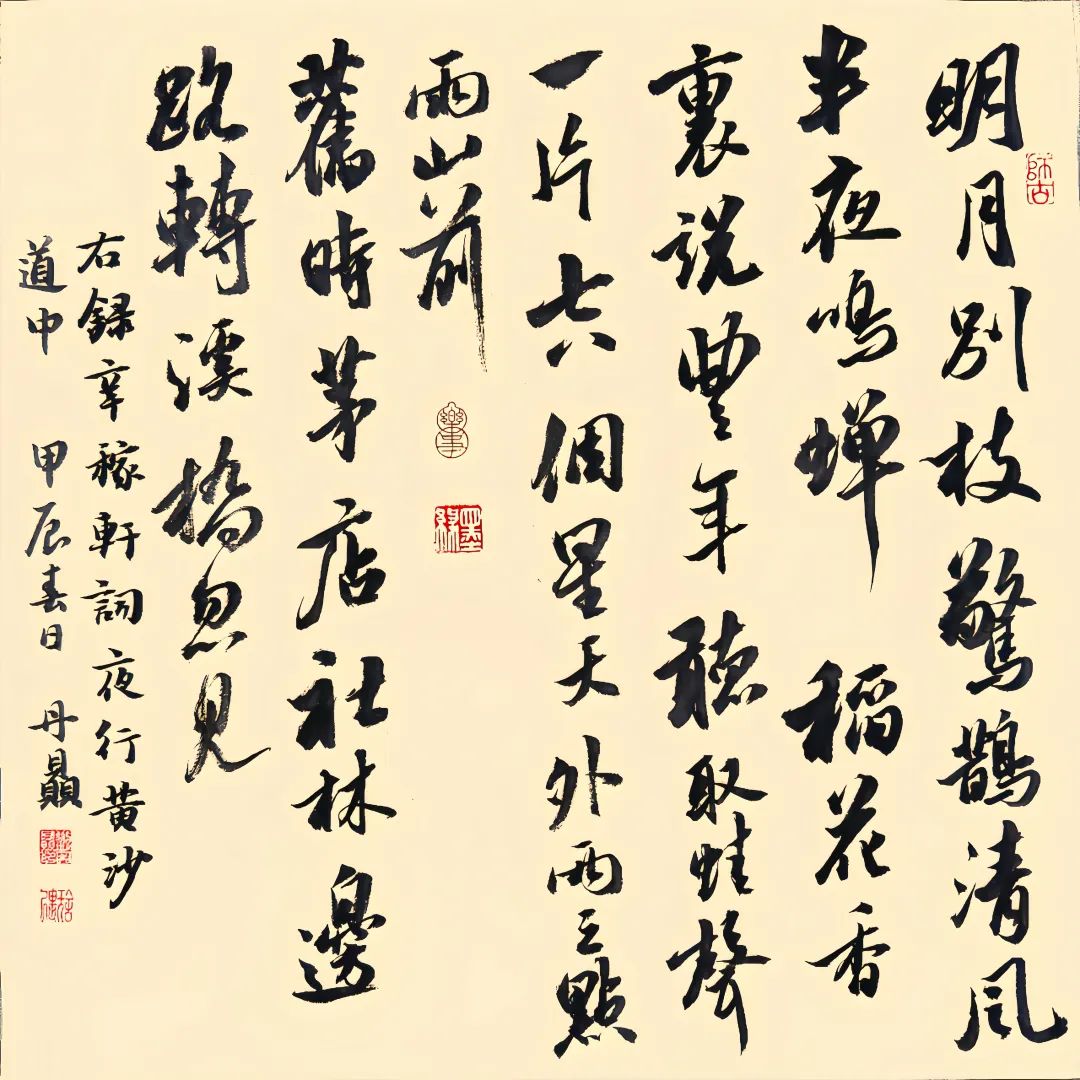 師古
明月別枝驚鵲清風
半夜鳴蟬 稻花香
裏説豐年 聽取蛙聲
一片 七八個星天外兩三點
雨山前
樂事
墨緣
舊時茅店社林邊
路轉溪橋忽見
右録辛稼軒詞夜行黄沙
道中 甲辰春日 丹